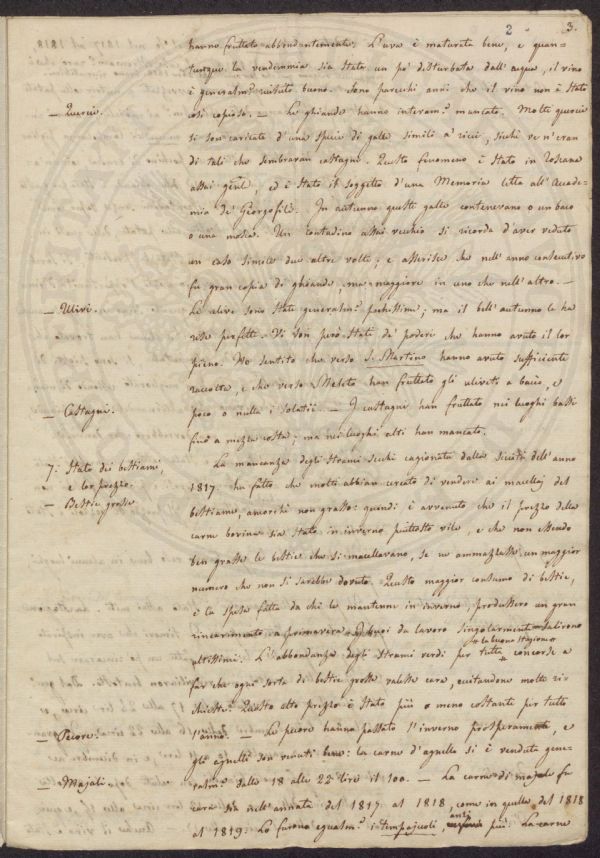 2 3.
hanno fruttato abbondantemente. L'uva è maturata bene, e quan-
tunque la vendemmia sia stata un pò disturbata dall'acqua, il vino
è generalm.e riuscito buono. Sono parecchi anni che il vino non è stato
— Quercie. così copioso. — Le ghiande hanno interam.e mancato. Molte quercie
si son caricate d'una specie di galle simili a' ricci, sicchè ve n'eran
di tali che sembravan castagni. Questo fenomeno è stato in Toscana
assai gen̄le, ed è stato il soggetto d'una Memoria letta all'Accade-
mia de' Georgofili. In autunno queste galle contenevano o un baco
o una mosca. Un contadino assai vecchio si ricorda d'aver veduto
un caso simile due altre volte; e asserisce che nell'anno consecutivo
fu gran copia di ghiande, ma maggiore in uno che nell'altro. —
— Ulivi. Le ulive sono state generalm.e pochissime; ma il bell'autunno le ha
rese perfette. Vi son però stati de' poderi che hanno avuto il lor
pieno. Ho sentito che verso S. Martino hanno avuto sufficiente
raccolta, e che verso Meleto han fruttato gli uliveti a bacìo, e
— Castagni. poco o nulla i solatìi. — I castagni han fruttato nei luoghi bassi
fino a mezza costa; ma nei luoghi alti han mancato.
7. Stato dei bestiami, La mancanza degli strami secchi cagionata dalla siccità dell'anno
e lor prezzo. 1817. ha fatto che molti abbian cercato di vendere ai macellaj del
— Bestie grosse bestiame, ancorchè non grasso: quindi è avvenuto che il prezzo della
carne bovina sia stato in inverno piuttosto vile, e che non essendo
ben grasse le bestie che si macellavano, se ne ammazzasse un maggior
numero che non si sarebbe dovuto. Questo maggior consumo di bestie,
e la spesa fatta da chi le mantenne in inverno, produssero un gran
rincarimento a primavera. I buoi da lavoro singolarmente salirono
altissimi. L'abbondanza degli strami verdi per tutta la buona stagione concorse a
far che ogni sorta di bestie grosse valesse cara, essendone molte ri-
chieste. Questo alto prezzo è stato più o meno costante per tutto
— Pecore. l'anno. — Le pecore hanno passato l'inverno prosperamente, e
gli agnelli son venuti bene: la carne d'agnello si è venduta gene-
ralm.e dalle 18 alle 22 lire il 100. — La carne di majale fu
— Majali. cara sia nell'annata del 1817 al 1818, come in quella del 1818
al 1819. Lo furono egualm.e i tempajuoli, anzi più. La carne